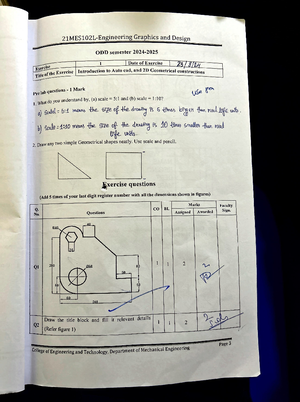 21MES102L-Engineering Graphics and Design
ODD semester 2024-2025
Exercise 1 Date of Exercise
Title of the Exercise Introduction to Auto cad, and 2D Geometrical constructions
Pre lab questions - 1 Mark
use pen
1. What do you understand by, (a) scale = 5:1 and (b) scale = 1:10?
a) Scale = 5:1 means the size of the drawing is 5 times bigger than real life
b) Scale = 1:10 means the size of the drawing is 10 times smaller than real
life
2. Draw any two simple Geometrical shapes neatly. Use scale and pencil.
Exercise questions
(Add 5 times of your last digit register number with all the dimensions shown in figures)
Q. No. Questions CO BL Marks Faculty Sign.
Assigned Awarded
Q1 1 1 2 2
Q2 Draw the title block and fill it relevant details 1 1 2 2
(Refer figure 1)
College of Engineering and Technology, Department of Mechanical Engineering Page 3